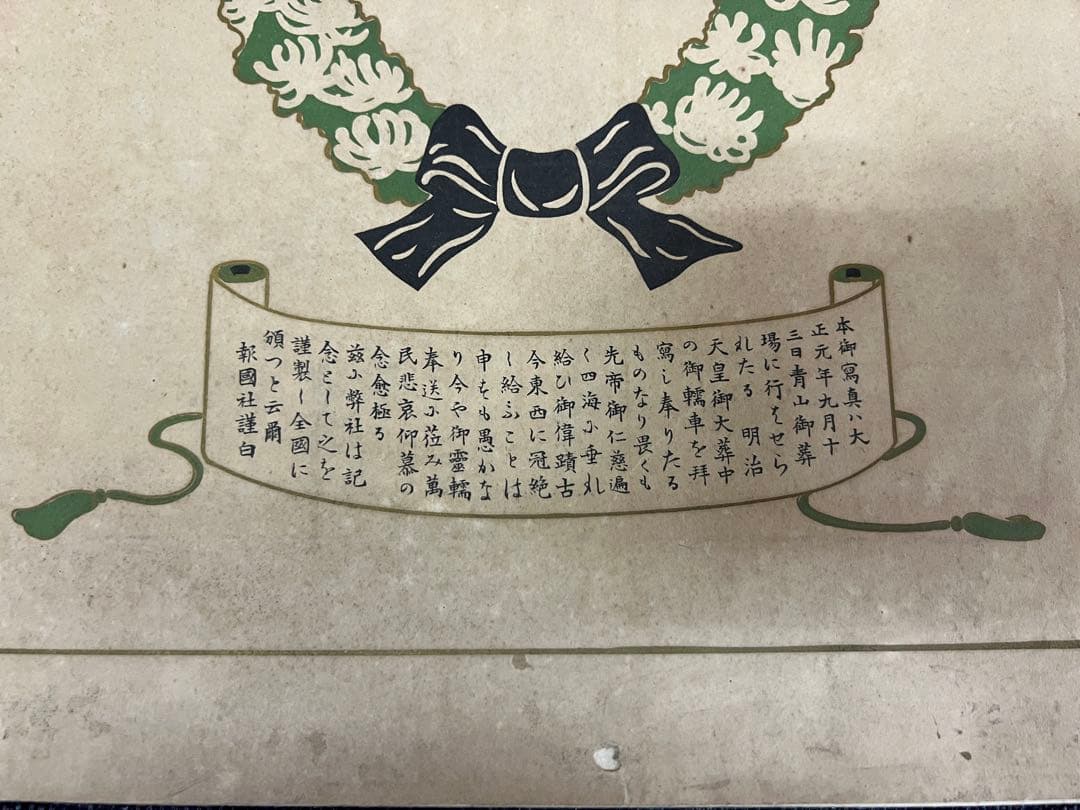 本御寫真ハ大
正元年九月十
三日青山御葬
場に行はせら
れたる　明治
天皇御大葬中
の御轜車を拜
寫し奉りたる
ものなり畏くも
先帝御仁慈遍
く四海に垂れ
給ひ御偉蹟古
今東西に冠絶
し給ふことは
申すも愚かな
り今や御靈轜
奉送に莅み萬
民悲哀仰慕の
念愈極る
茲に弊社は記
念として之を
謹製し全國に
頒つと云爾
報國社謹白